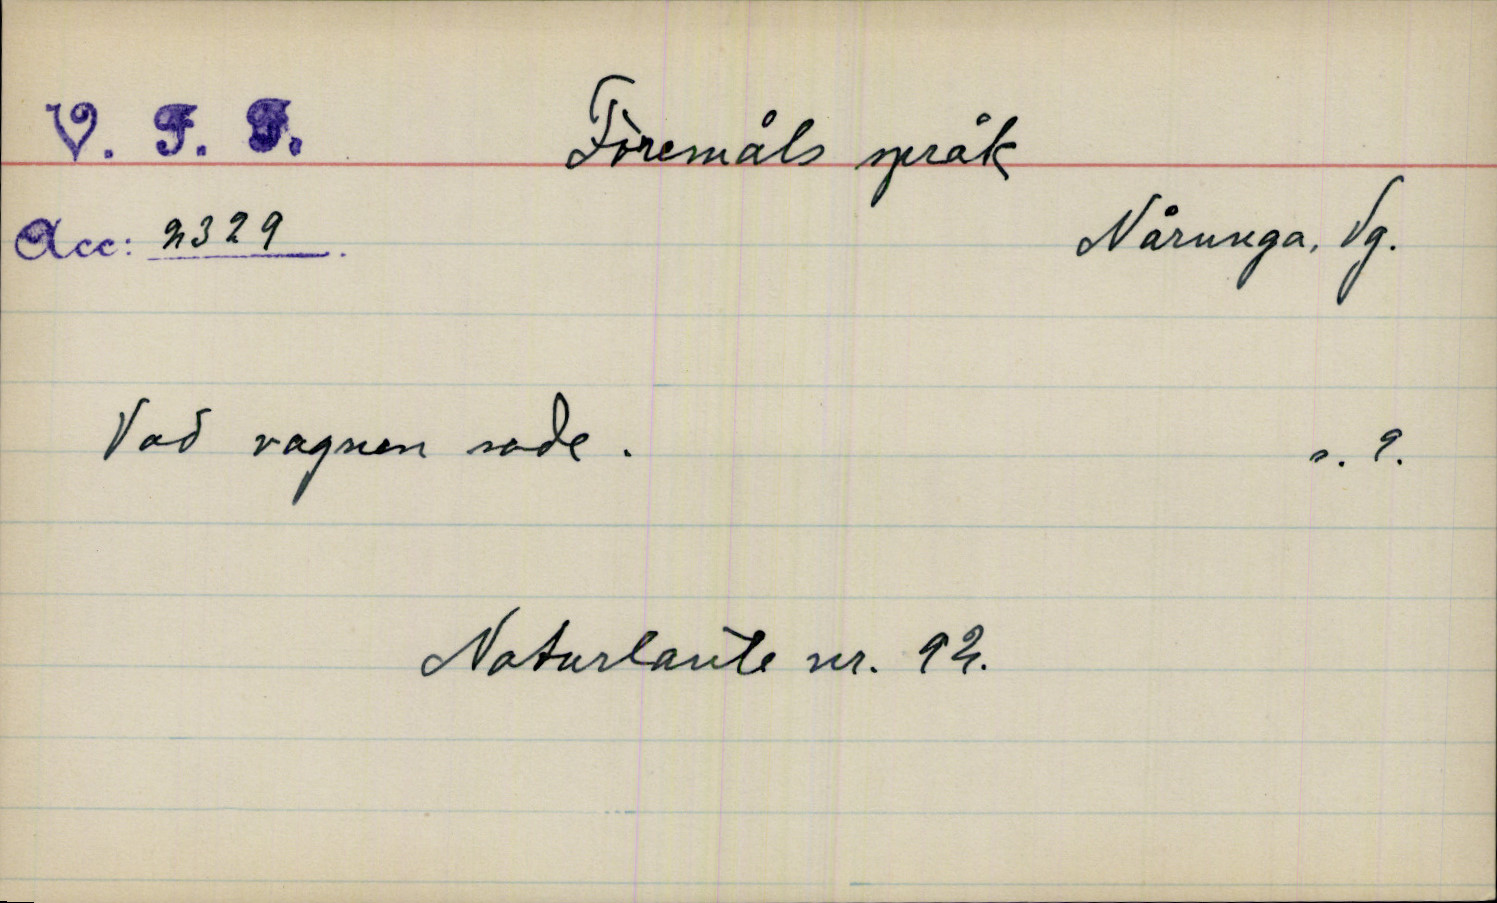 V. F. F.
Föremåls språk
Acc: 2329.
Nårunga, Vg.
Vad vagnen sade. s. 9.
Naturlaute nr. 92.